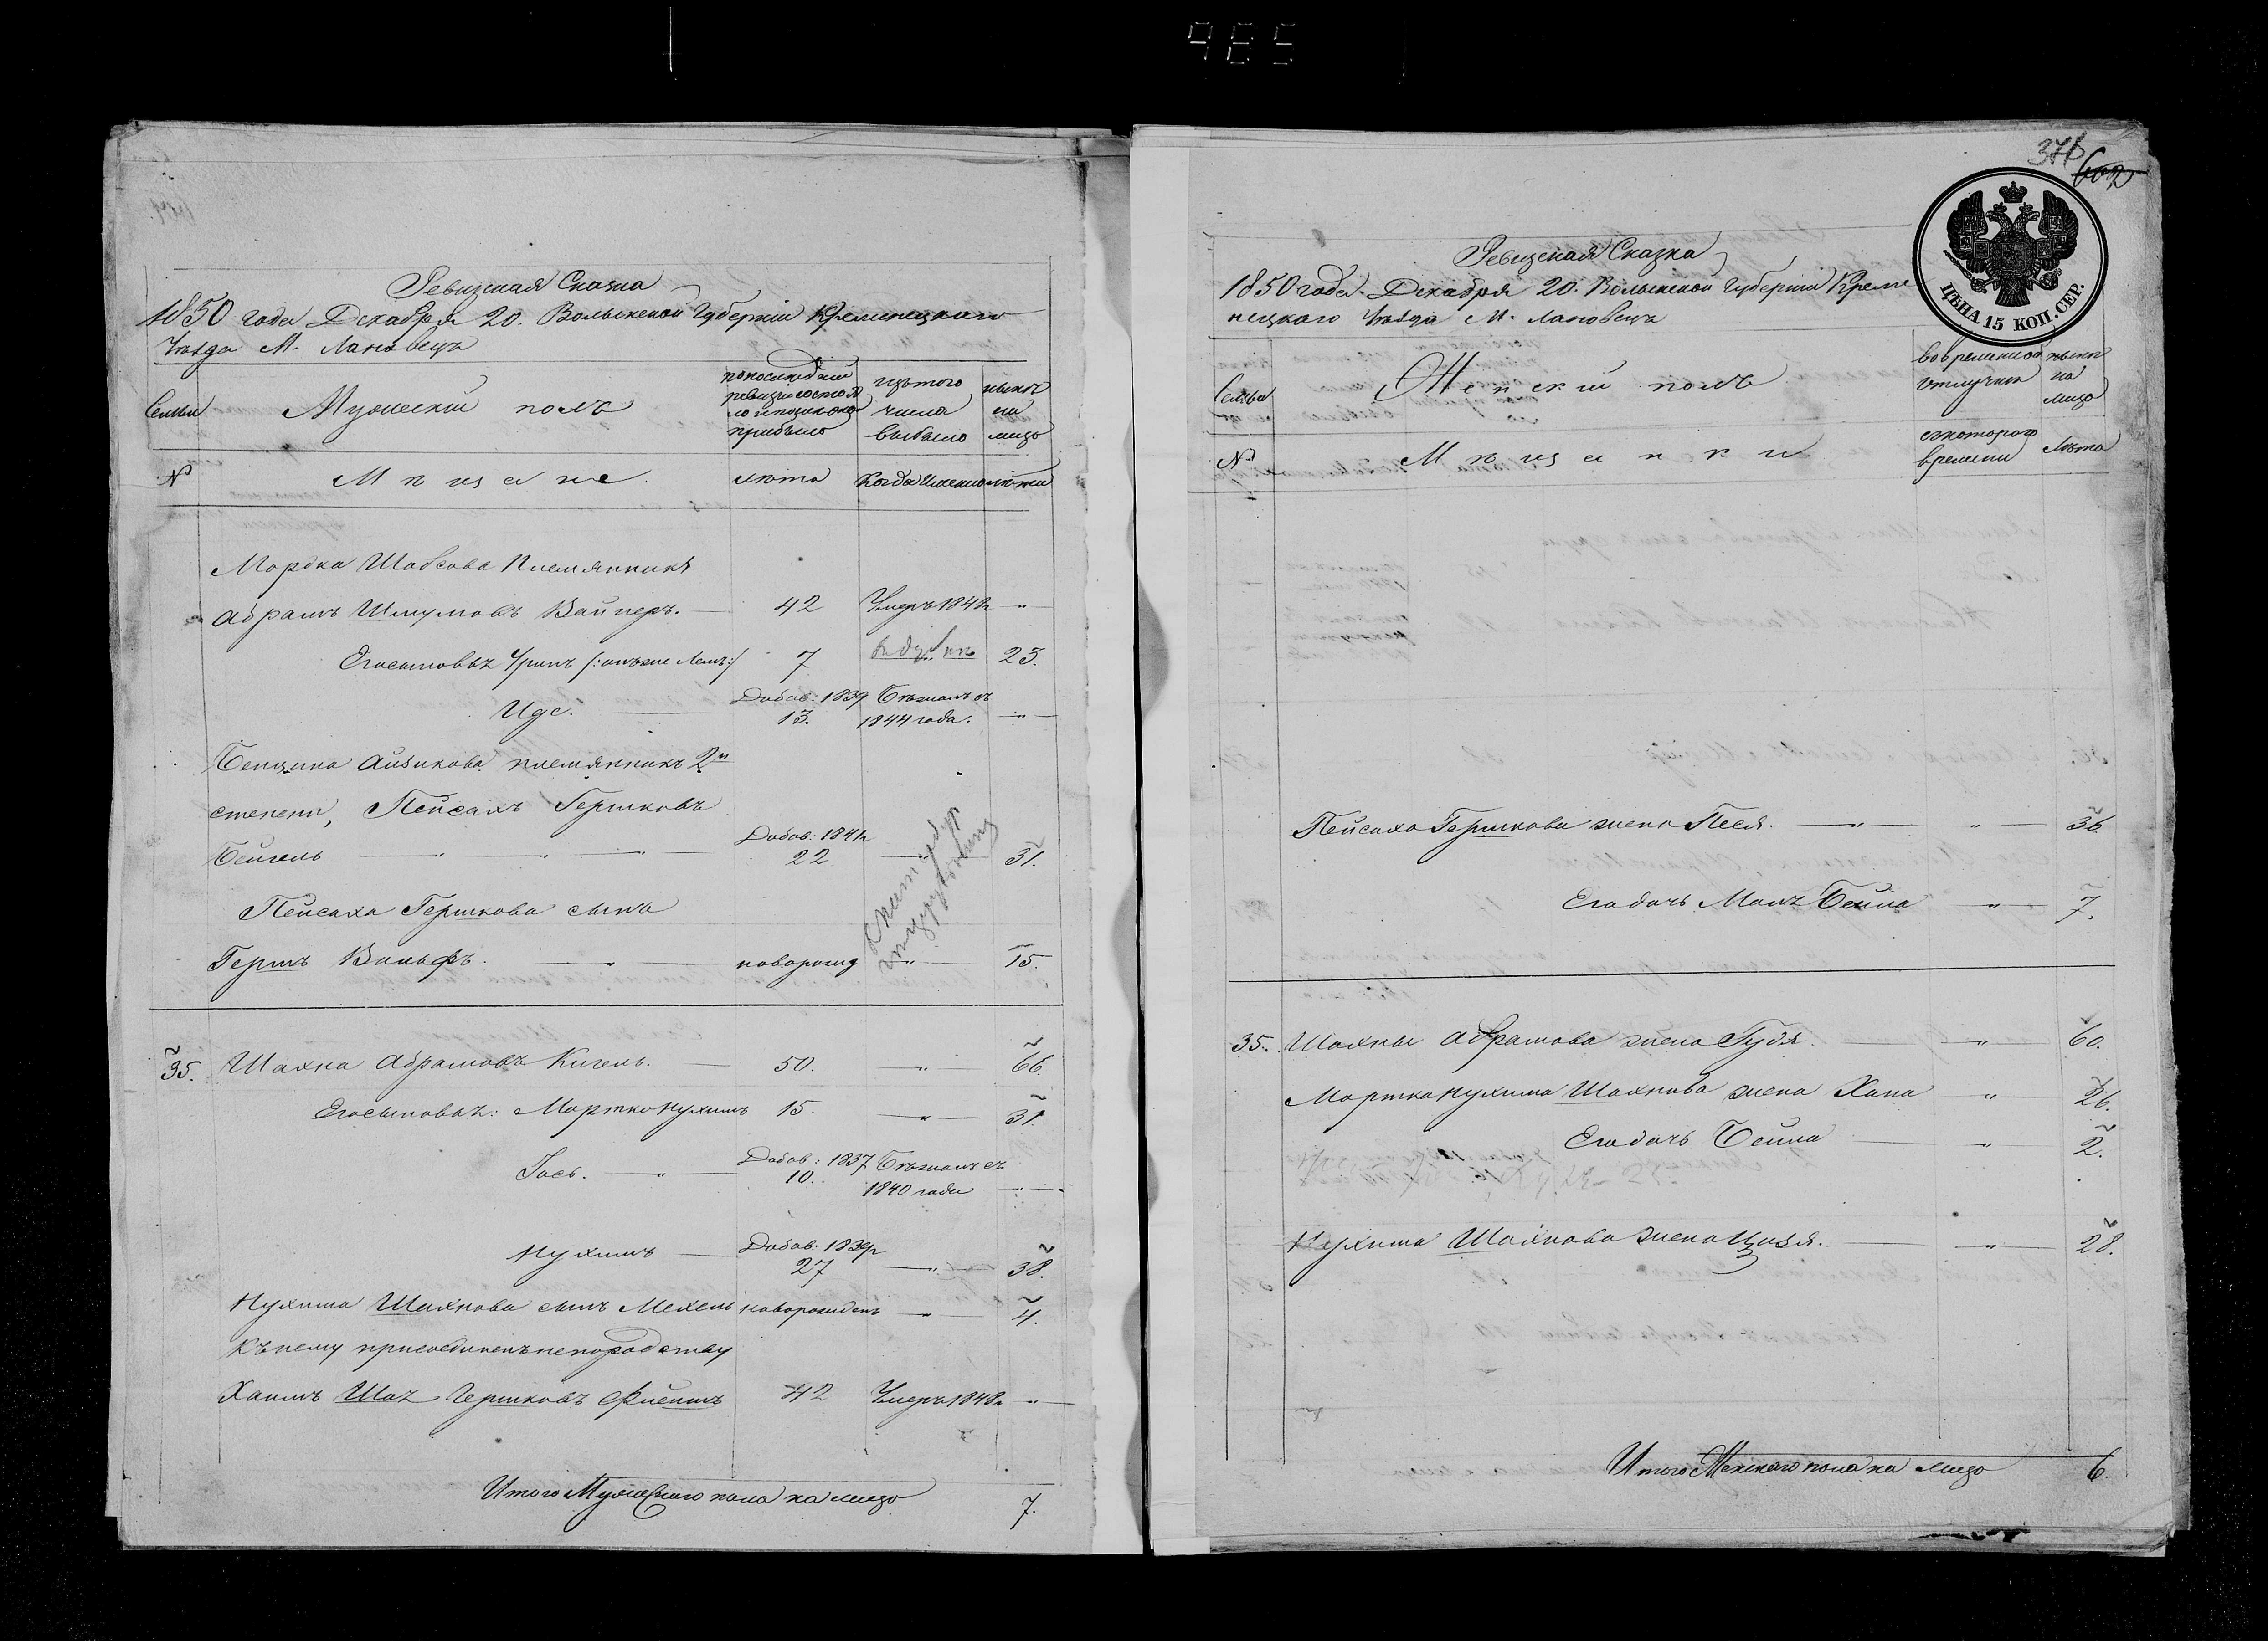 Ревизская Сказка
1850 года Декабря 20. Волынской Губерніи Кременецкаго
Уѣзда М. Лановецъ
Семьи
Мужескій полъ
по последней
ревизіи состоя
ло и после оной
прибыло
изъ того
числа
выбыло
ныне
на
лицо
№
Мѣщане.
лѣта
Когда именно
лѣта
Мордка Шабсова Племянникъ
Абрамъ Шмулювъ Вайнеръ. 42 Умеръ 1848г "
Его сыновья 7 23.
Иде. Добав: 1839 Бѣжалъ съ
13. 1844 года. "
Бенциона Айзикова племянникъ 2й
степени, Пейсахъ Гершковъ
Добав: 1841г
Бейгель " " " 22 31.
Пейсаха Гершкова сынъ
Гершъ Вольфъ. " новорожд " 15.
35. Шахна Абрамовъ Кигель. 50. " 66.
Его сыновья: Мортко Нухимъ 15. " 31.
Іось. " Добав: 1837 Бѣжалъ съ
10. 1840 года
Нухимъ Добав: 1839г
27 " 38.
Нухима Шахнова сынъ Мехель новорожденъ " 4.
Къ нему присоединенъ не по родству
Хаимъ Шая Гершковъ 42 Умеръ 1848г "
Итого Мужескаго пола на лицо 7.
485
376
602
ЦѢНА 15 КОП. СЕР.
Ревизская Сказка
1850 года Декабря 20. Волынской Губерніи Креме
нецкаго Уѣзда М. Лановецъ
Семьи
Женскій полъ
во временной
отлучки
ныне
на
лицо
№
Мѣщанки
съ котораго
времени
Лѣта
Пейсаха Гершкова жена Песя. " " 36.
Его дочь Бейла " 7.
35. Шахны Абрамова жена Гудя. " 60.
Мортка Нухима Шахнова жена Хана " 26.
Его дочь Бейла " 2.
Нухима Шахнова жена Цизя. " 28.
Итого Женскаго пола на лицо 6.